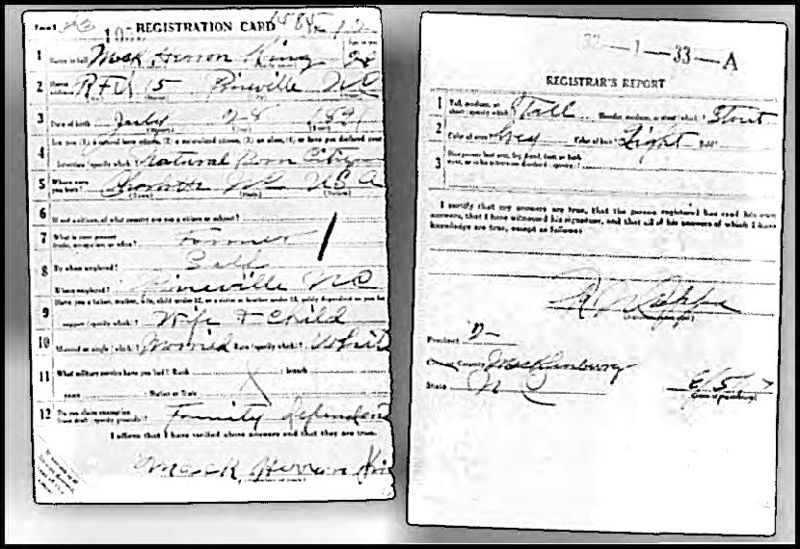 REGISTRATION CARD
1 Name in full Mack Herron King
2 Home address RFD 15 Pineville NC
3 Date of birth July 28
4 Are you (1) a natural born citizen, (2) a naturalized citizen, (3) an alien, (4) or have you declared your
intention (specify which)? Natural Born Citizen
5 Where were you born? Charlotte NC USA
6 If not a citizen, of what country are you a citizen or subject?
7 What is your present trade, occupation, or office? Farmer
8 By whom employed? Self
Where employed? Pineville NC
9 Have you a father, mother, wife, child under 12, or a sister or brother under 12, solely dependent on you for
support (specify which)? Wife & Child
10 Married or single (which)? Married Race (specify which)? White
11 What military service have you had? Rank branch
years Nation or State
12 Do you claim exemption from draft (specify grounds)? Family dependent
I affirm that I have verified above answers and that they are true.
Mack Herron King
33-A
REGISTRAR'S REPORT
1 Tall, medium, or short (specify which)? Tall Slender, medium, or stout (which)? Stout
2 Color of eyes Grey Color of hair Light Bald?
3 Has person lost arm, leg, hand, foot, or both
eyes, or is he otherwise disabled (specify)?
I certify that my answers are true, that the person registered has read his own
answers, that I have witnessed his signature, and that all of his answers of which I have
knowledge are true, except as follows:
Precinct
County Mecklenburg
State NC